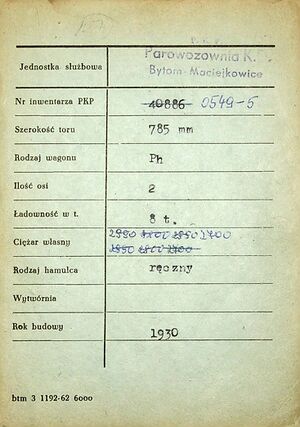 Parowozownia K.
Jednostka służbowa
Bytom-Maciejkowice
Nr inwentarza PKP 40886 0549-5
Szerokość toru 785 mm
Rodzaj wagonu Ph
Ilość osi 2
Ładowność w t. 8 t.
2950 2700
Ciężar własny
Rodzaj hamulca ręczny
Wytwórnia
Rok budowy 1930
btm 3 1192-62 6000